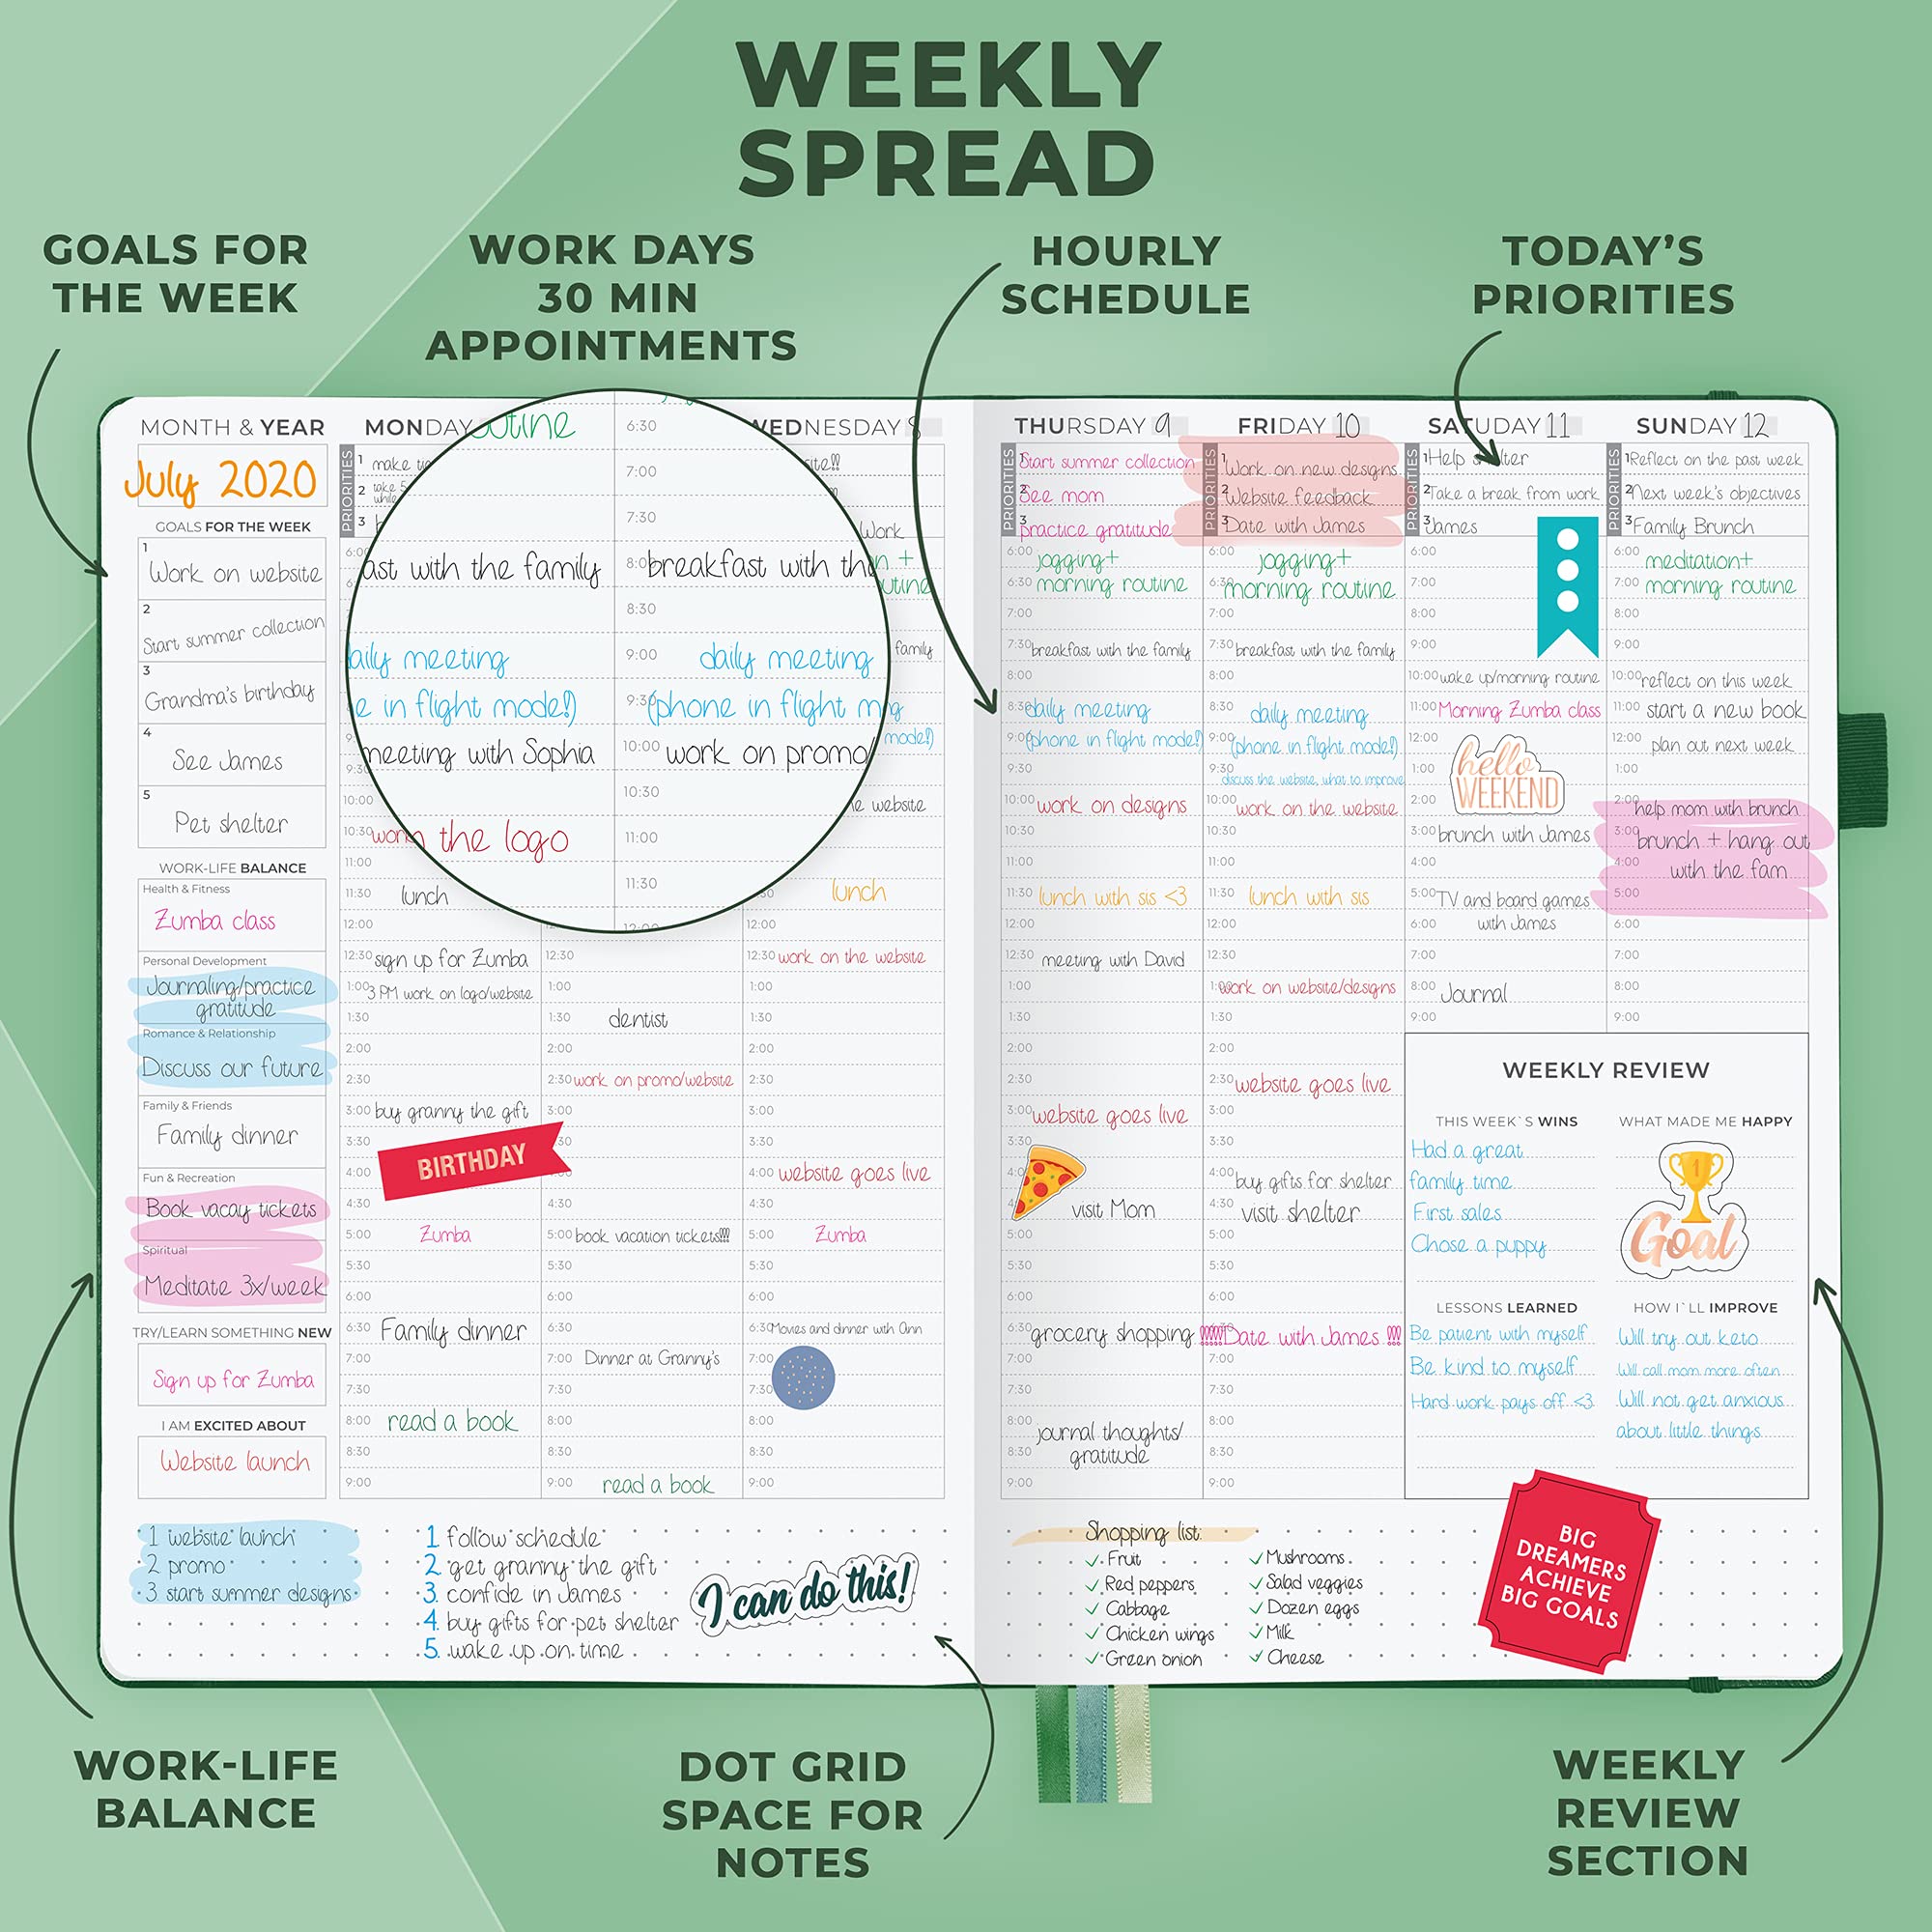 WEEKLY
SPREAD
GOALS FOR
THE WEEK
WORK DAYS
30 MIN
APPOINTMENTS
HOURLY
SCHEDULE
TODAY'S
PRIORITIES
MONTH & YEAR
July 2020
GOALS FOR THE WEEK
1
Work on website
2
Start summer collection
3
Grandma's birthday
4
See James
5
Pet shelter
WORK-LIFE BALANCE
Health & Fitness
Zumba class
Personal Development
Journaling/practice
gratitude
Romance & Relationship
Discuss our future
Family & Friends
Family dinner
Fun & Recreation
Book vacay tickets
Spiritual
Meditate 3x/week
TRY/LEARN SOMETHING NEW
Sign up for Zumba
I AM EXCITED ABOUT
Website launch
MONDAY
PRIORITIES
1 make
2 take 5
while
3
6:00
9:30
10:00
10:30 work
11:00
11:30 lunch
12:00
12:30 sign up for Zumba
1:00 3 PM work on logo/website
1:30
2:00
2:30
3:00 buy granny the gift
3:30
4:00
BIRTHDAY
4:30
5:00 Zumba
5:30
6:00
6:30 Family dinner
7:00
7:30
8:00 read a book
8:30
9:00
6:30
7:00
7:30
with the family
8:00 breakfast with the
8:30
meeting
9:00 daily meeting
in flight mode!)
9:30 (phone in flight
meeting with Sophia
10:00 work on promo/
10:30
the logo
11:00
11:30
12:00
12:30
1:00
1:30 dentist
2:00
2:30 work on promo/website
3:00
3:30
4:00
4:30
5:00 book vacation tickets!!!!
5:30
6:00
6:30
7:00 Dinner at Granny's
7:30
8:00
8:30
9:00 read a book
WEDNESDAY 8
Work
family
mode!)
website
lunch
12:00
12:30 work on the website
1:00
1:30
2:00
2:30
3:00
3:30
4:00 website goes live
4:30
5:00 Zumba
5:30
6:00
6:30 Movies and dinner with Ann
7:00
7:30
8:00
8:30
9:00
THURSDAY 9
PRIORITIES
1 Start summer collection
2 See mom
3 practice gratitude
6:00 jogging+
6:30 morning routine
7:00
7:30 breakfast with the family
8:00
8:30 daily meeting
9:00 (phone in flight mode!)
9:30
10:00 work on designs
10:30
11:00
11:30 lunch with sis <3
12:00
12:30 meeting with David
1:00
1:30
2:00
2:30
3:00 website goes live
3:30
visit Mom
5:00
5:30
6:00
6:30 grocery shopping !!!!!
7:00
7:30
8:00 journal thoughts/
8:30 gratitude
9:00
FRIDAY 10
PRIORITIES
1 Work on new designs
2 Website feedback
3 Date with James
6:00 jogging+
6:30 morning routine
7:00
7:30 breakfast with the family
8:00
8:30 daily meeting
9:00 (phone in flight mode!)
9:30 discuss the website, what to improve
10:00 work on the website
10:30
11:00
11:30 lunch with sis
12:00
12:30
1:00 work on website/designs
1:30
2:00
2:30 website goes live
3:00
3:30
4:00 buy gifts for shelter
4:30 visit shelter
5:00
5:30
6:00
6:30 Date with James !!!
7:00
7:30
8:00
8:30
9:00
SATUDAY 11
PRIORITIES
1 Help shelter
2 Take a break from work
3 James
6:00
7:00
8:00
9:00
10:00 wake up/morning routine
11:00 Morning Zumba class
12:00
1:00
hello
WEEKEND
2:00
3:00 brunch with James
4:00
5:00 TV and board games
6:00 with James
7:00
8:00 Journal
9:00
SUNDAY 12
PRIORITIES
1 Reflect on the past week
2 Next week's objectives
3 Family Brunch
6:00 meditation+
7:00 morning routine
8:00
9:00
10:00 reflect on this week
11:00 start a new book
12:00 plan out next week
1:00
2:00 help mom with brunch
3:00 brunch + hang out
4:00 with the fam
5:00
6:00
7:00
8:00
9:00
WEEKLY REVIEW
THIS WEEK`S WINS
Had a great
family time
First sales
Chose a puppy
WHAT MADE ME HAPPY
1
Goal
LESSONS LEARNED
Be patient with myself
Be kind to myself
Hard work pays off <3
HOW I`LL IMPROVE
Will try out keto
Will call mom more often
Will not get anxious
about little things
1 website launch
2 promo
3 start summer designs
1. follow schedule
2. get granny the gift
3. confide in James
4. buy gifts for pet shelter
5. wake up on time
I can do this!
Shopping list:
Fruit
Red peppers
Cabbage
Chicken wings
Green onion
Mushrooms
Salad veggies
Dozen eggs
Milk
Cheese
BIG
DREAMERS
ACHIEVE
BIG GOALS
WORK-LIFE
BALANCE
DOT GRID
SPACE FOR
NOTES
WEEKLY
REVIEW
SECTION